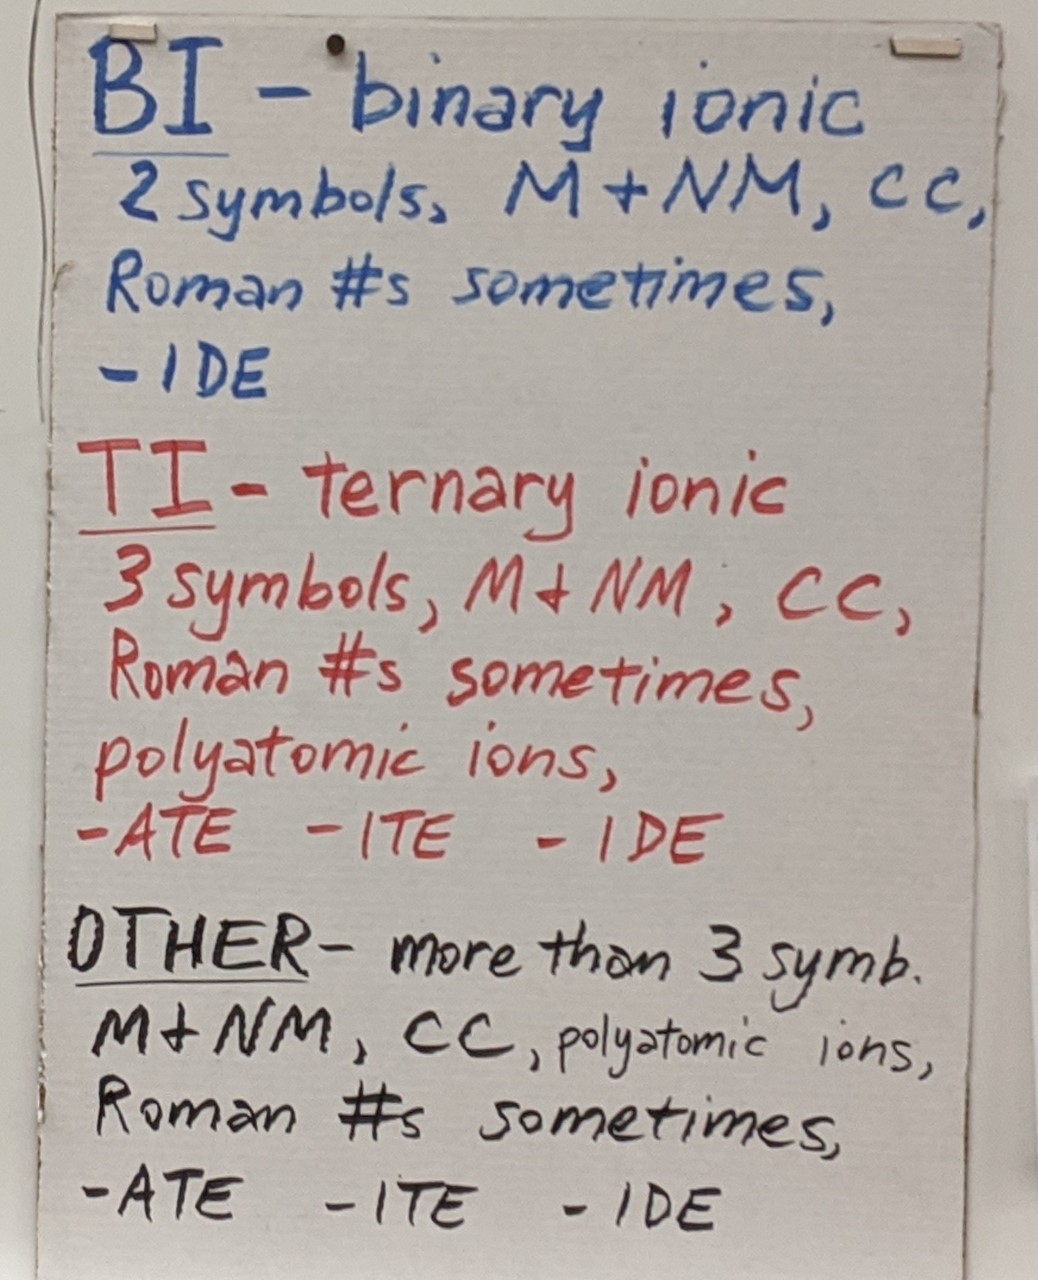 BI - binary ionic
2 symbols, M + NM, CC,
Roman #s sometimes,
- IDE
TI - ternary ionic
3 symbols, M + NM, CC,
Roman #s sometimes,
polyatomic ions,
-ATE -ITE -IDE
OTHER - more than 3 symb.
M + NM, CC, polyatomic ions,
Roman #s sometimes,
-ATE -ITE -IDE